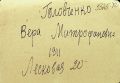 Головченко
Вера Митрофановна
1911
Лесковая 20